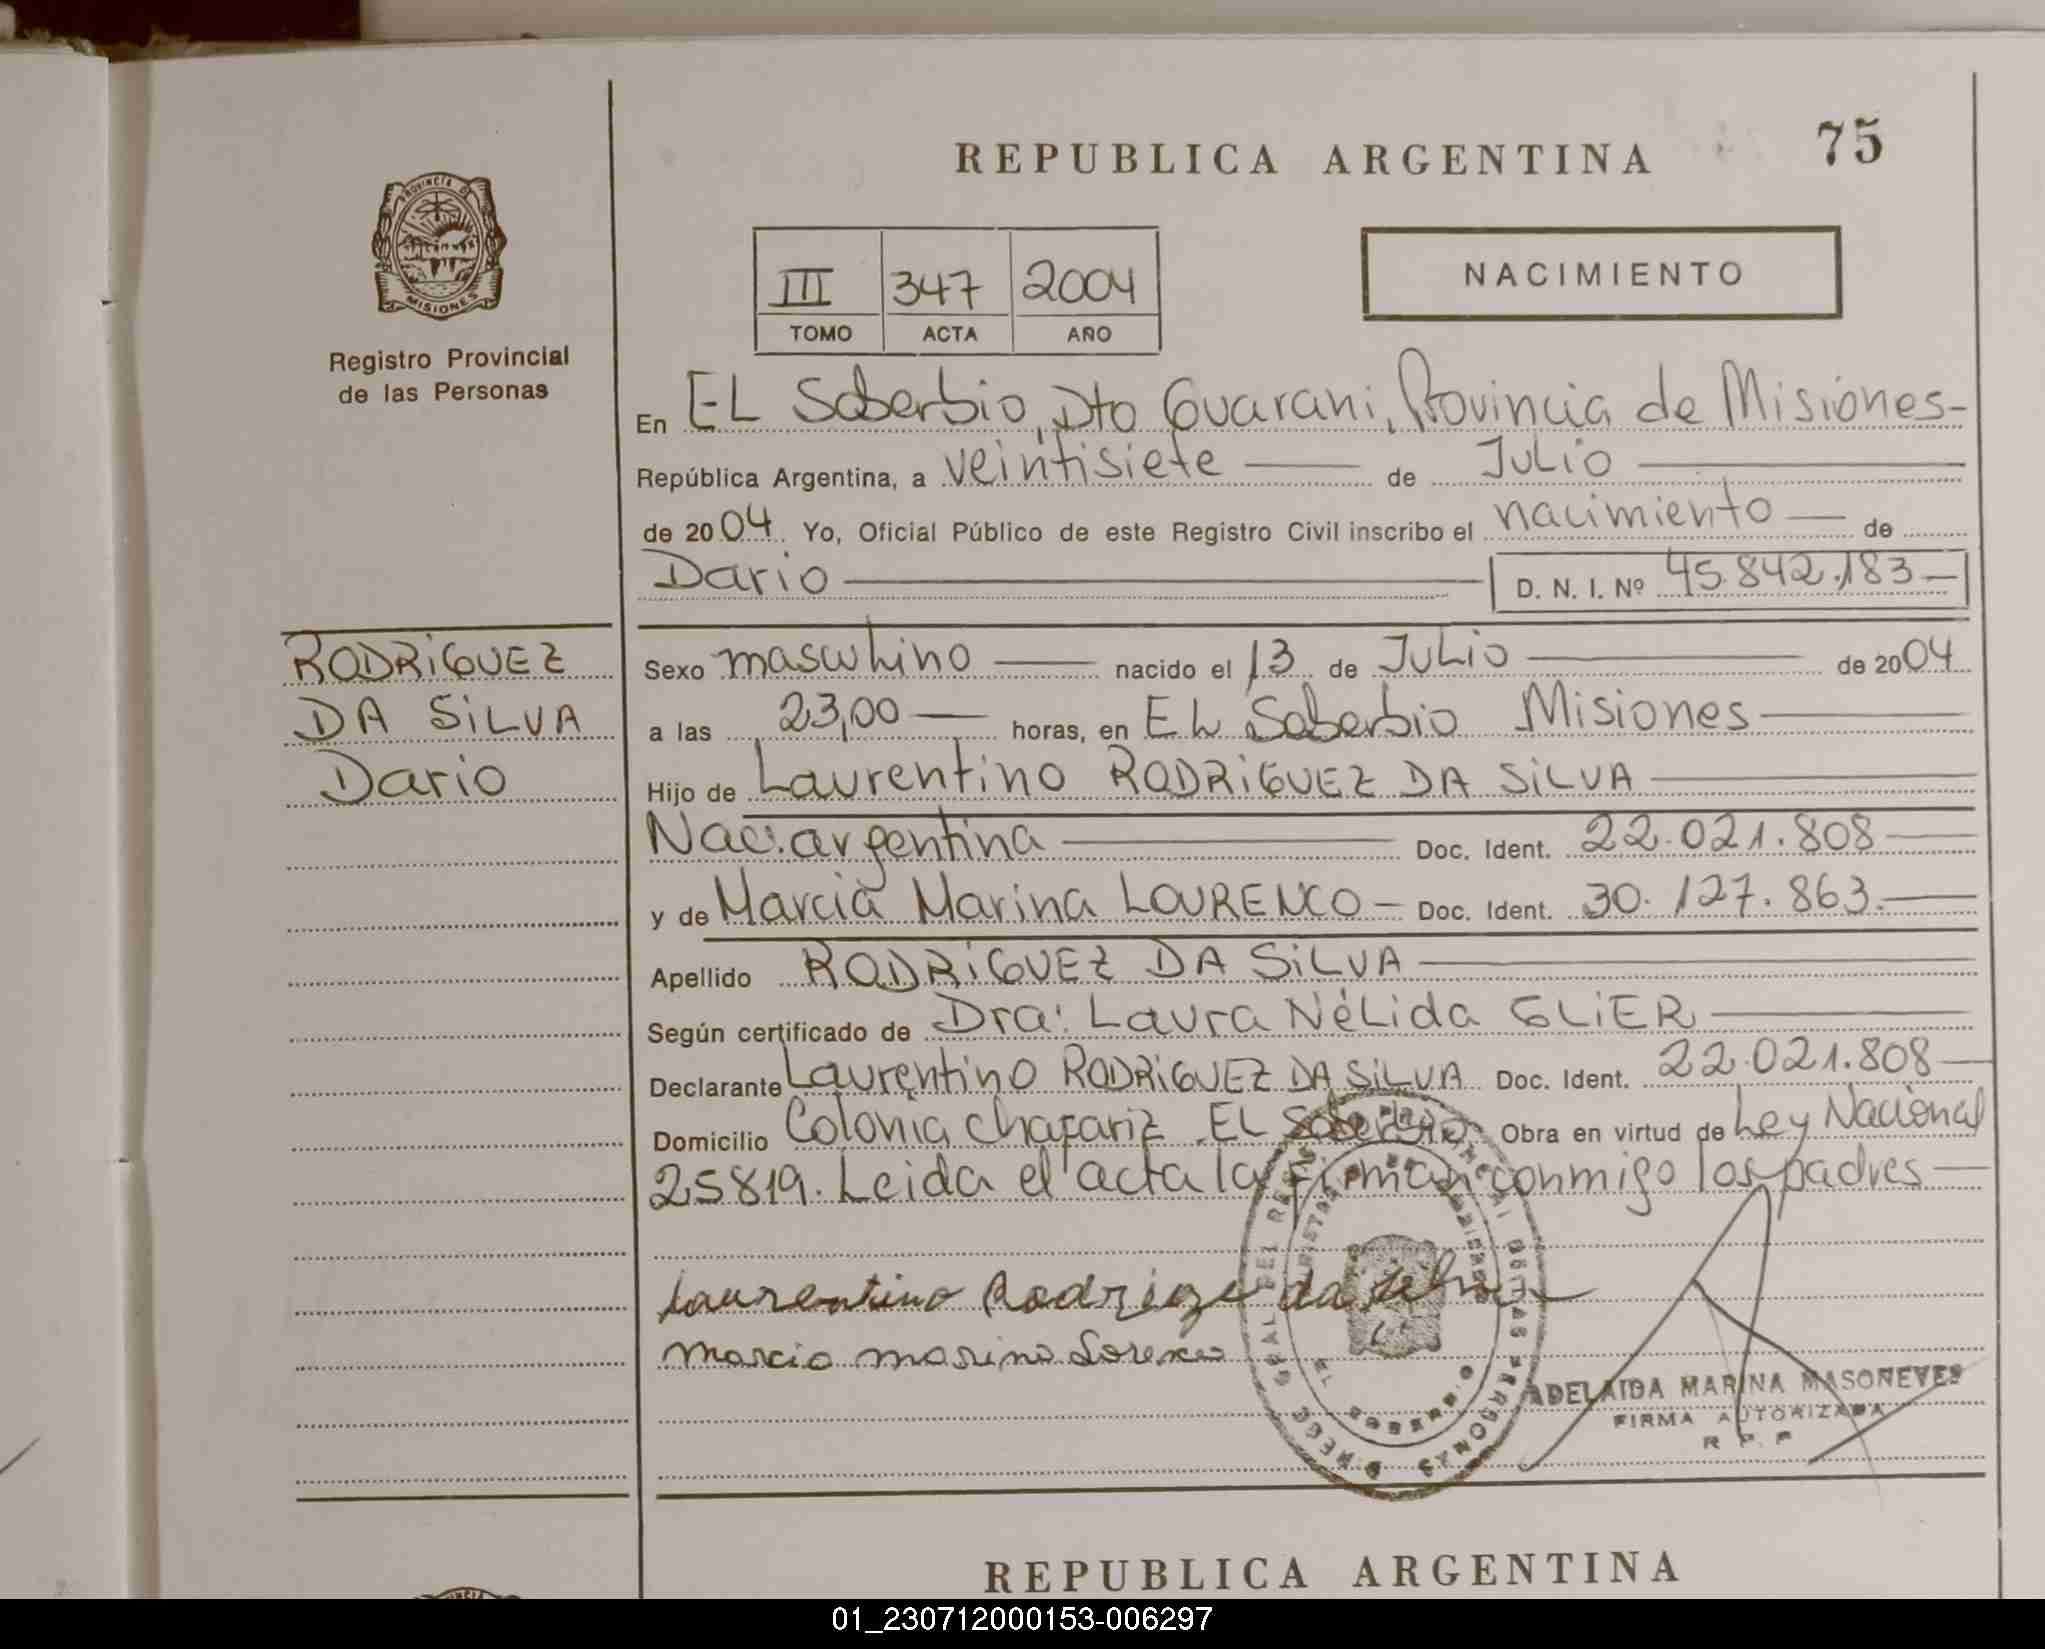 REPUBLICA ARGENTINA 75
PROVINCIA DE MISIONES
Registro Provincial
de las Personas
III 347 2004
TOMO ACTA AÑO
NACIMIENTO
En EL Soberbio, Dto Guarani, Provincia de Misiones-
República Argentina, a veintisiete de Julio
de 2004. Yo, Oficial Público de este Registro Civil inscribo el nacimiento de
Dario D. N. I. Nº 45.842.183
RODRiGUEZ
DA SiLVA
Dario
Sexo masculino nacido el 13 de Julio de 2004
a las 23,00 horas, en EL Soberbio Misiones
Hijo de Laurentino RODRiGUEZ DA SiLVA
Nac. argentina Doc. Ident. 22.021.808
y de Marcia Marina LOURENCO Doc. Ident. 30.127.863.
Apellido RODRiGUEZ DA SiLVA
Según certificado de Dra: Laura NéLida GLiER
Declarante Laurentino RODRiGUEZ DA SiLVA Doc. Ident. 22.021.808
Domicilio Colonia Chafariz EL Soberbio. Obra en virtud de Ley Nacional
25819. Leida el acta la firman conmigo los padres
Laurentino Rodrigue da
marcia marina Lorenco
ADELAIDA MARINA MASONEVES
FIRMA AUTORIZADA
R. P. P
REPUBLICA ARGENTINA
01_230712000153-006297